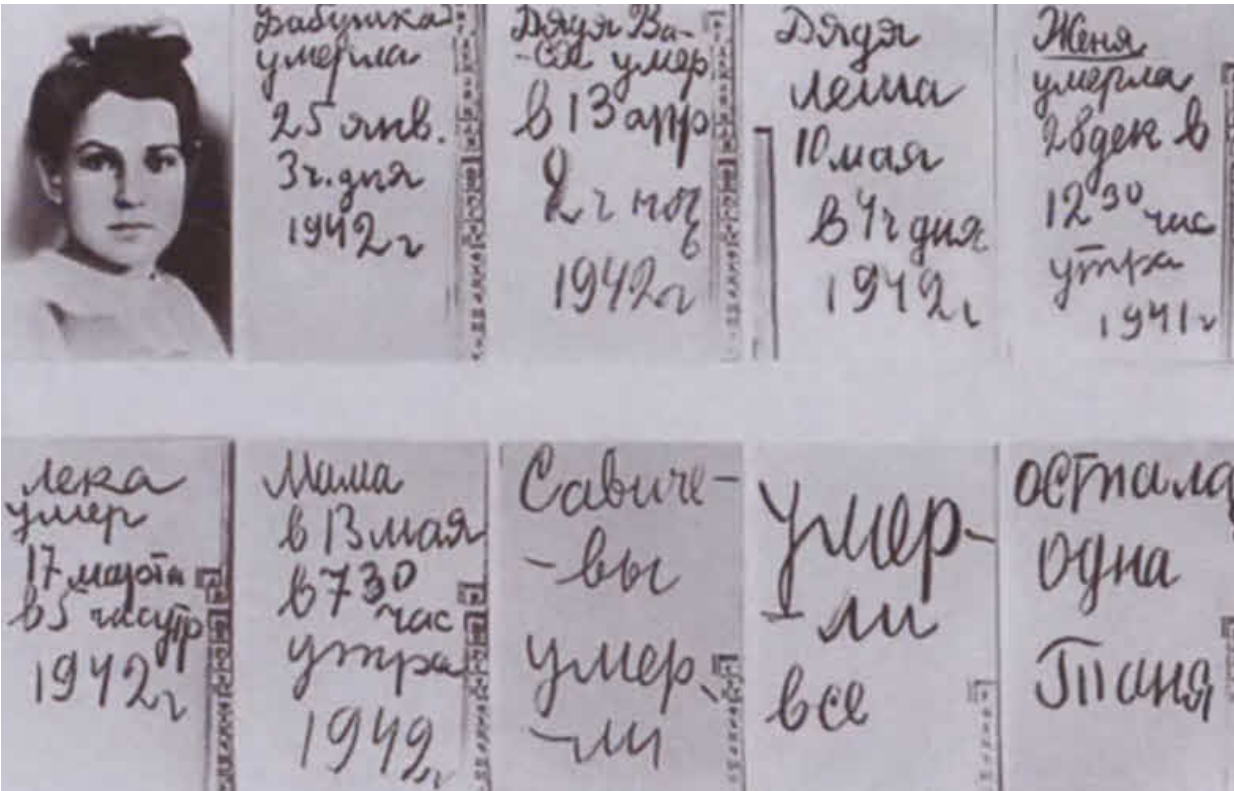 Бабушка
умерла
25 янв.
3ч. дня
1942 г
Дядя Ва-
-ся умер
в 13 апр
2 ч ноч
ь
1942 г
Дядя
Леша
10 мая
в 4 ч дня
1942 г
Женя
умерла
28 дек в
12 30 час
утра
1941 г
Лека
умер
17 марта
в 5 час утр
1942 г
Мама
в 13 мая
в 7 30
час
утра
1942 г
Савиче-
-вы
умер-
-ли
умер-
-ли
все
остала
одна
Таня